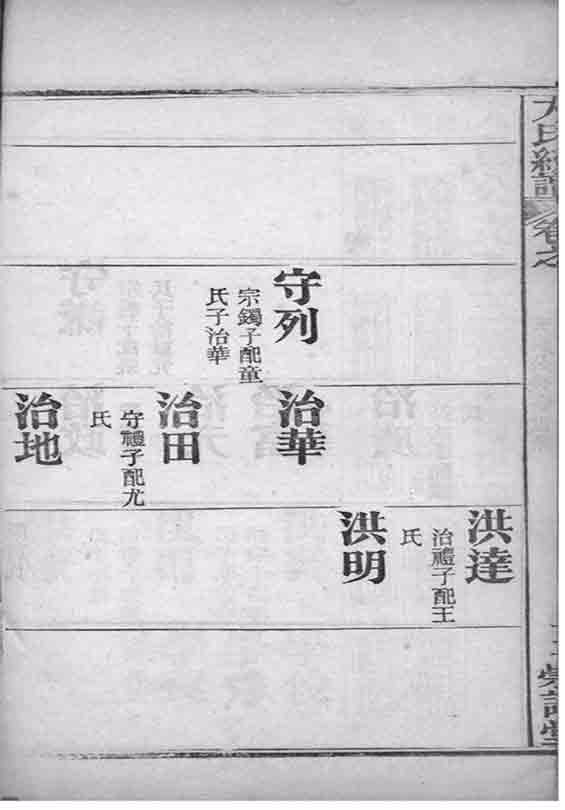 氏
卷之
守列
宗鐲子配童
氏子治華
治華
治田
守禮子配尤
氏
治地
洪達
治禮子配王
氏
洪明